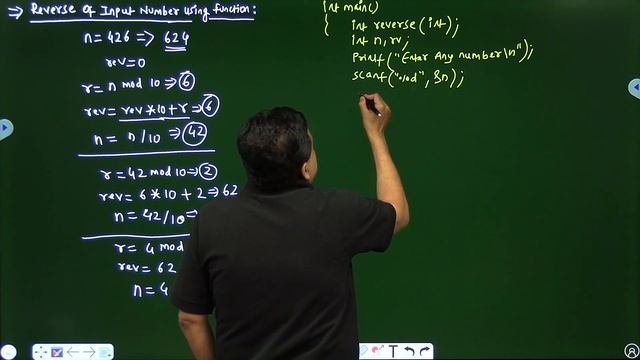 ⇒ Reverse of Input Number using function:
n = 426 => 624
rev=0
r = n mod 10 => 6
rev = rev*10+r => 6
n = n/10 => 42
r = 42 mod 10 => 2
rev = 6*10+2 => 62
n = 42/10 =>
r = 4 mod
rev = 62
n = 4
int main()
{ int reverse(int);
int n, rv;
printf("Enter Any number\n");
scanf("%d", &n);
T